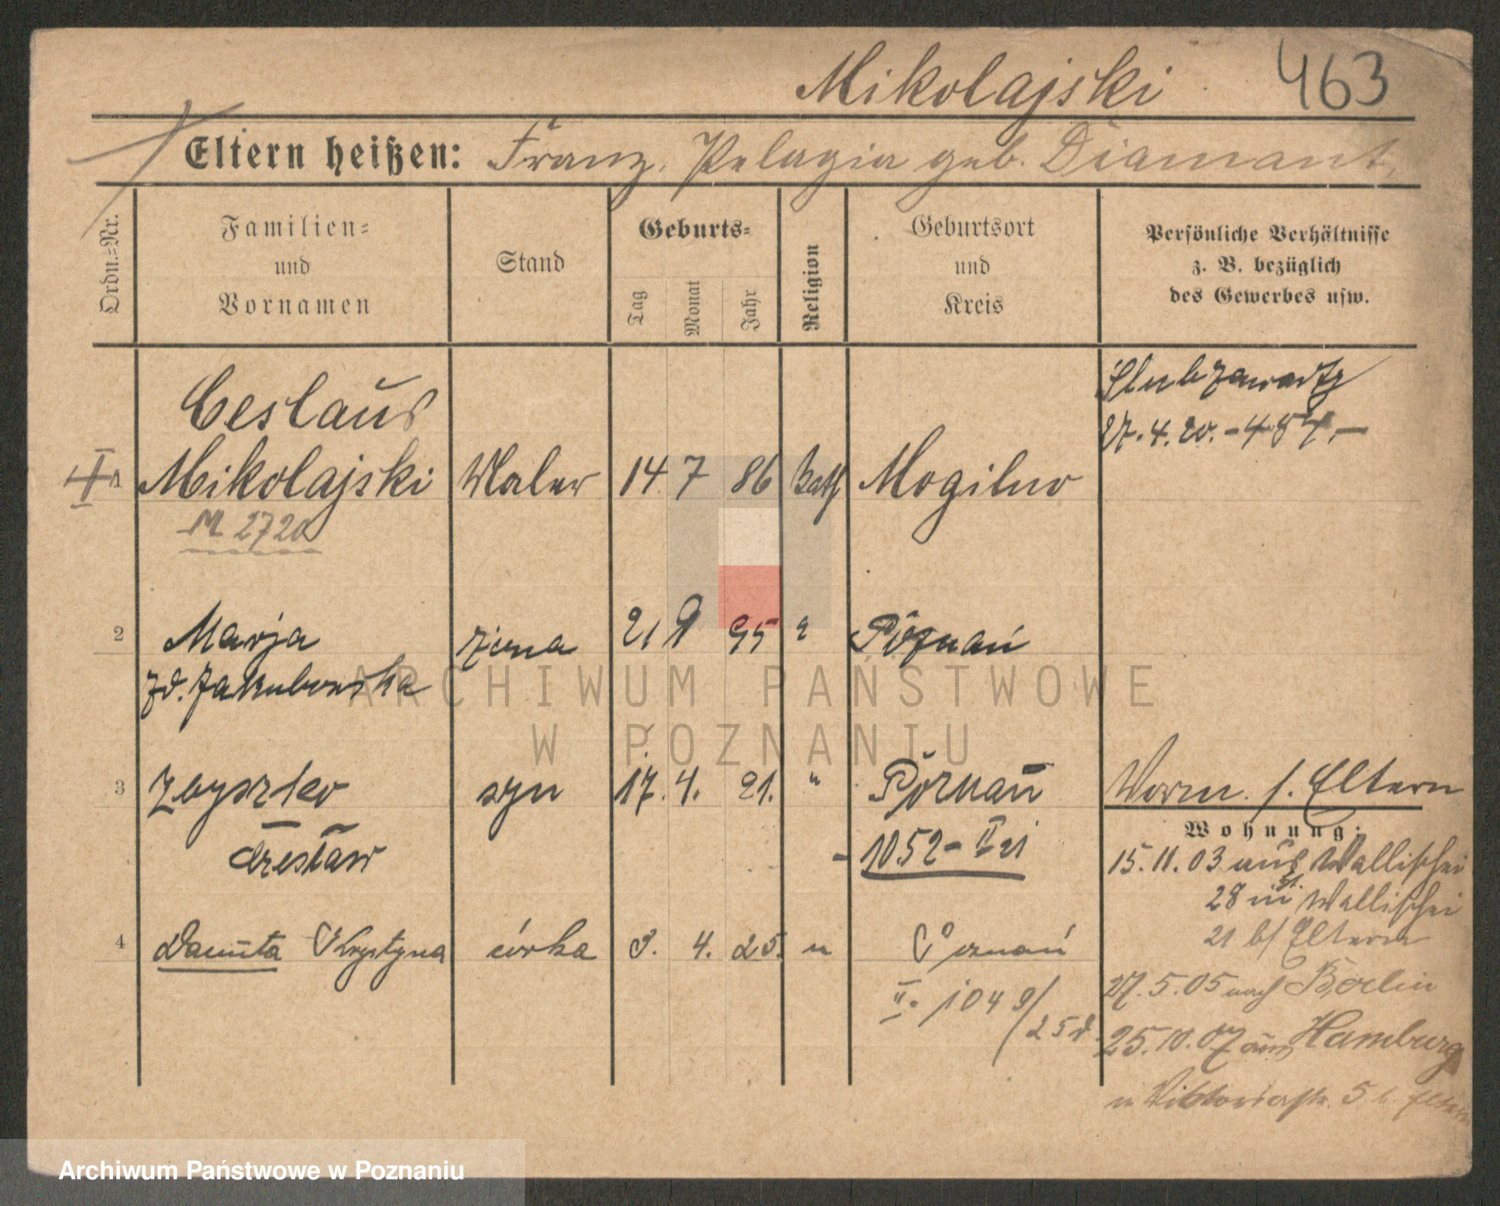 Mikolajski 463
Eltern heißen: Franz, Pelagia geb. Diamant
Ordn.=Nr.
Familien=
und
Vornamen
Stand
Geburts=
Tag
Monat
Jahr
Religion
Geburtsort
und
Kreis
Persönliche Verhältnisse
z. B. bezüglich
des Gewerbes usw.
Ślub zawarty
27.4.20. - 487. -
Ceslaus
1 Mikolajski Maler 14 7 86 Kath Mogilno
M 2720
2 Marja żona 21 9 95 Poznań
zd. Jakubowska
3 Zbyszko syn 17. 4. 21. " Poznań
Czesław
1052 - II
4 Danuta Krystyna córka 3. 4. 25. " Poznań
II. 1049/25
Vorm. s. Eltern
Wohnung:
15.11.03 aus Wallischei
28 in Wallischei
21 b/ Eltern
27.5.05 nach Berlin
25.10.07 aus Hamburg
n Viktoriastr. 5 b. Eltern
ARCHIWUM PAŃSTWOWE
W POZNANIU
Archiwum Państwowe w Poznaniu